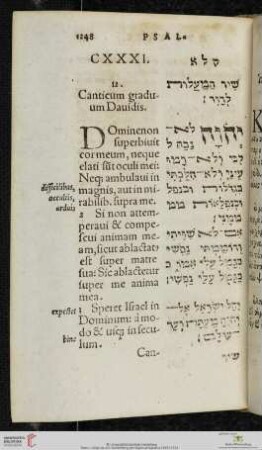 1248 PSAL.
CXXXI.
12.
Canticum gradu-
um Dauidis.
DOminenon
superbiuit
cor meum, neque
elati sūt oculi mei:
Neq; ambulaui in
magnis, aut in mi-
rabilib. supra me.
2 Si non attem-
peraui & compe-
scui animam me-
am, sicut ablactat
est super matre
sua: Sic ablactetur
super me anima
mea.
3 Speret Israel in
Dominum: à mo-
do & usq; in secu-
lum.
Can-
difficilibus,
arduis
expectet
hinc
קלא
שיר המעלות
לדוד:
יהוה לא
גבה ל
לבי ולא רמו
עיני ולא הלכתי
בגדולות ובנפל
ובנפלאות
ממני:
אם לא שויתי
ודוממתי נפשי
כגמל עלי אמו כ
כגמל עלי נפשי:
יחל ישראל אל
יהוה מעתה ועד
עולם:
שיר